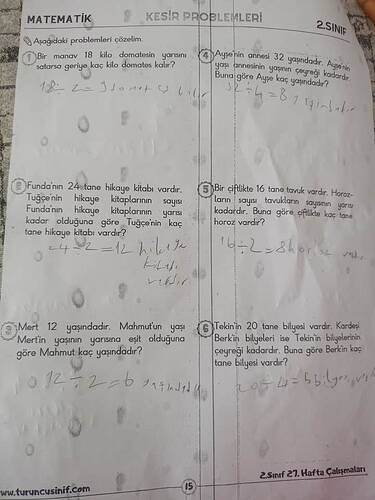 MATEMATİK
KESİR PROBLEMLERİ
2.SINIF
Aşağıdaki problemleri çözelim.
1 Bir manav 18 kilo domatesin yarısını
satarsa geriye kaç kilo domates kalır?
18÷2=9 domates kalır
2 Funda'nın 24 tane hikaye kitabı vardır.
Tuğçe'nin hikaye kitaplarının sayısı
Funda'nın hikaye kitaplarının yarısı
kadar olduğuna göre Tuğçe'nin kaç
tane hikaye kitabı vardır?
24÷2=12 hikaye
kitabı
vardır
3 Mert 12 yaşındadır. Mahmut'un yaşı
Mert'in yaşının yarısına eşit olduğuna
göre Mahmut kaç yaşındadır?
12÷2=6 yaşındadır
4 Ayşe'nin annesi 32 yaşındadır. Ayşe'nin
yaşı annesinin yaşının çeyreği kadardır.
Buna göre Ayşe kaç yaşındadır?
32÷4=8
5 Bir çiftlikte 16 tane tavuk vardır. Horoz-
ların sayısı tavukların sayısının yarısı
kadardır. Buna göre çiftlikte kaç tane
horoz vardır?
16÷2=8
6 Tekin'in 20 tane bilyesi vardır. Kardeşi
Berk'in bilyeleri ise Tekin'in bilyelerinin
çeyreği kadardır. Buna göre Berk'in kaç
tane bilyesi vardır?
20÷4=5
www.turuncusinif.com
15
2.Sınıf 27. Hafta Çalışmaları